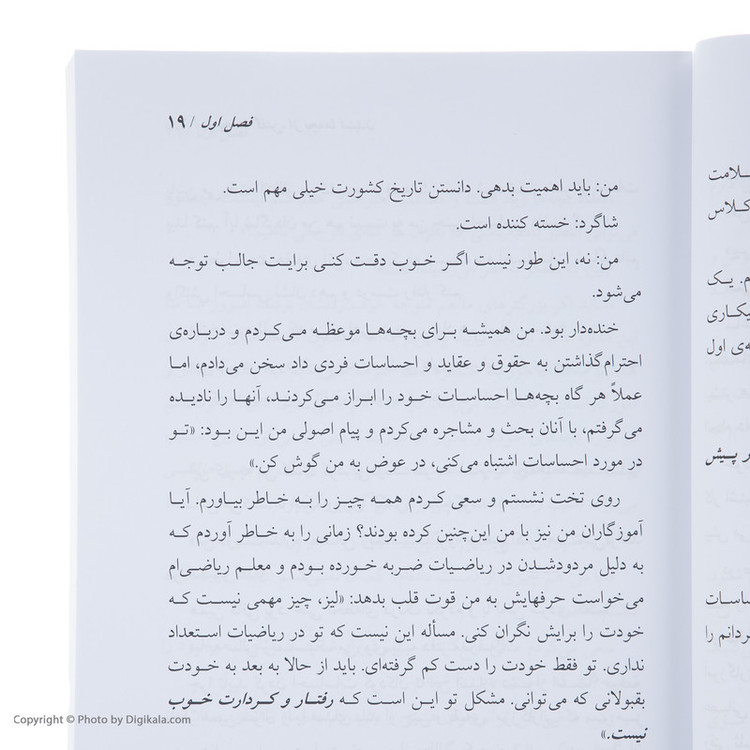 فصل اول / ۱۹
من: باید اهمیت بدهی. دانستن تاریخ کشورت خیلی مهم است.
شاگرد: خسته کننده است.
من: نه، این طور نیست اگر خوب دقت کنی برایت جالب توجه
می‌شود.
خنده‌دار بود. من همیشه برای بچه‌ها موعظه می‌کردم و درباره‌ی
احترام‌گذاشتن به حقوق و عقاید و احساسات فردی داد سخن می‌دادم، اما
عملاً هر گاه بچه‌ها احساسات خود را ابراز می‌کردند، آنها را نادیده
می‌گرفتم، با آنان بحث و مشاجره می‌کردم و پیام اصولی من این بود: «تو
در مورد احساسات اشتباه می‌کنی، در عوض به من گوش کن.»
روی تخت نشستم و سعی کردم همه چیز را به خاطر بیاورم. آیا
آموزگاران من نیز با من این‌چنین کرده بودند؟ زمانی را به خاطر آوردم که
به دلیل مردودشدن در ریاضیات ضربه خورده بودم و معلم ریاضی‌ام
می‌خواست حرفهایش به من قوت قلب بدهد: «لیز، چیز مهمی نیست که
خودت را برایش نگران کنی. مسأله این نیست که تو در ریاضیات استعداد
نداری. تو فقط خودت را دست کم گرفته‌ای. باید از حالا به بعد به خودت
بقبولانی که می‌توانی. مشکل تو این است که رفتار و کردارت خوب
نیست.»
سلامت
کلاس
م. یک
یکاری
ه‌ی اول
ر پیش
ساسات
ردانم را
Copyright © Photo by Digikala.com